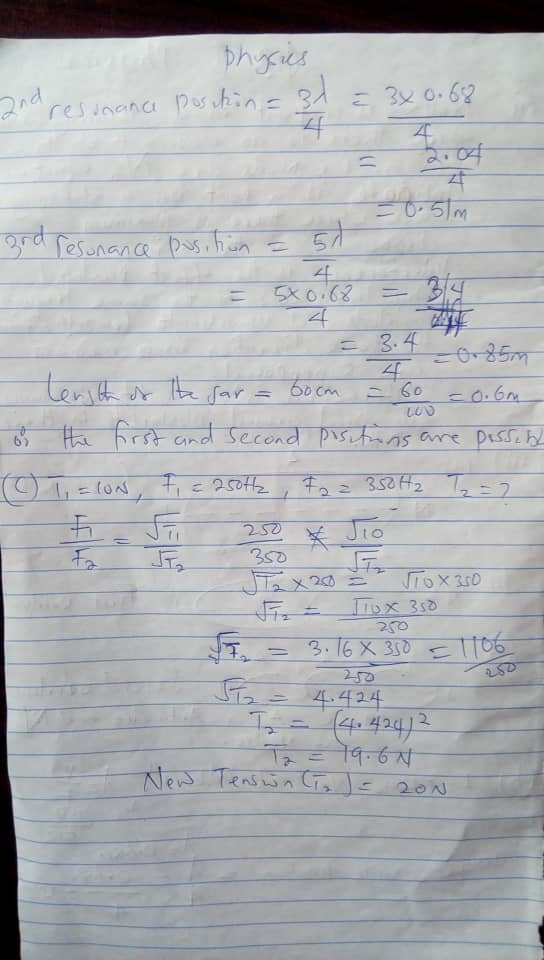 physics
2nd resonance position = 3λ/4 = 3x0.68/4
= 2.04/4
= 0.51m
3rd resonance position = 5λ/4
= 5x0.68/4 = 3.4
= 3.4/4 = 0.85m
Length of the jar = 60cm = 60/100 = 0.6m
∴ the first and second positions are possibl
(C) T₁ = 10N, F₁ = 250Hz, F₂ = 350Hz T₂ = ?
F₁/F₂ = √T₁/√T₂ 250/350 = √10/√T₂
√T₂ x 250 = √10 x 350
√T₂ = √10 x 350/250
√T₂ = 3.16 x 350/250 = 1106/250
√T₂ = 4.424
T₂ = (4.424)²
T₂ = 19.6N
New Tension (T₂) = 20N